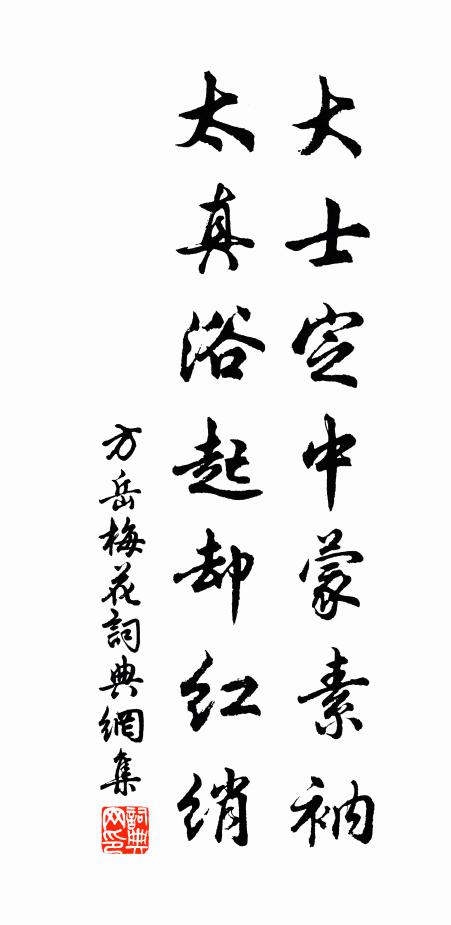 大士定中蒙素衲
太真浴起却红绡
方岳梅花詞典網集
詞典網印